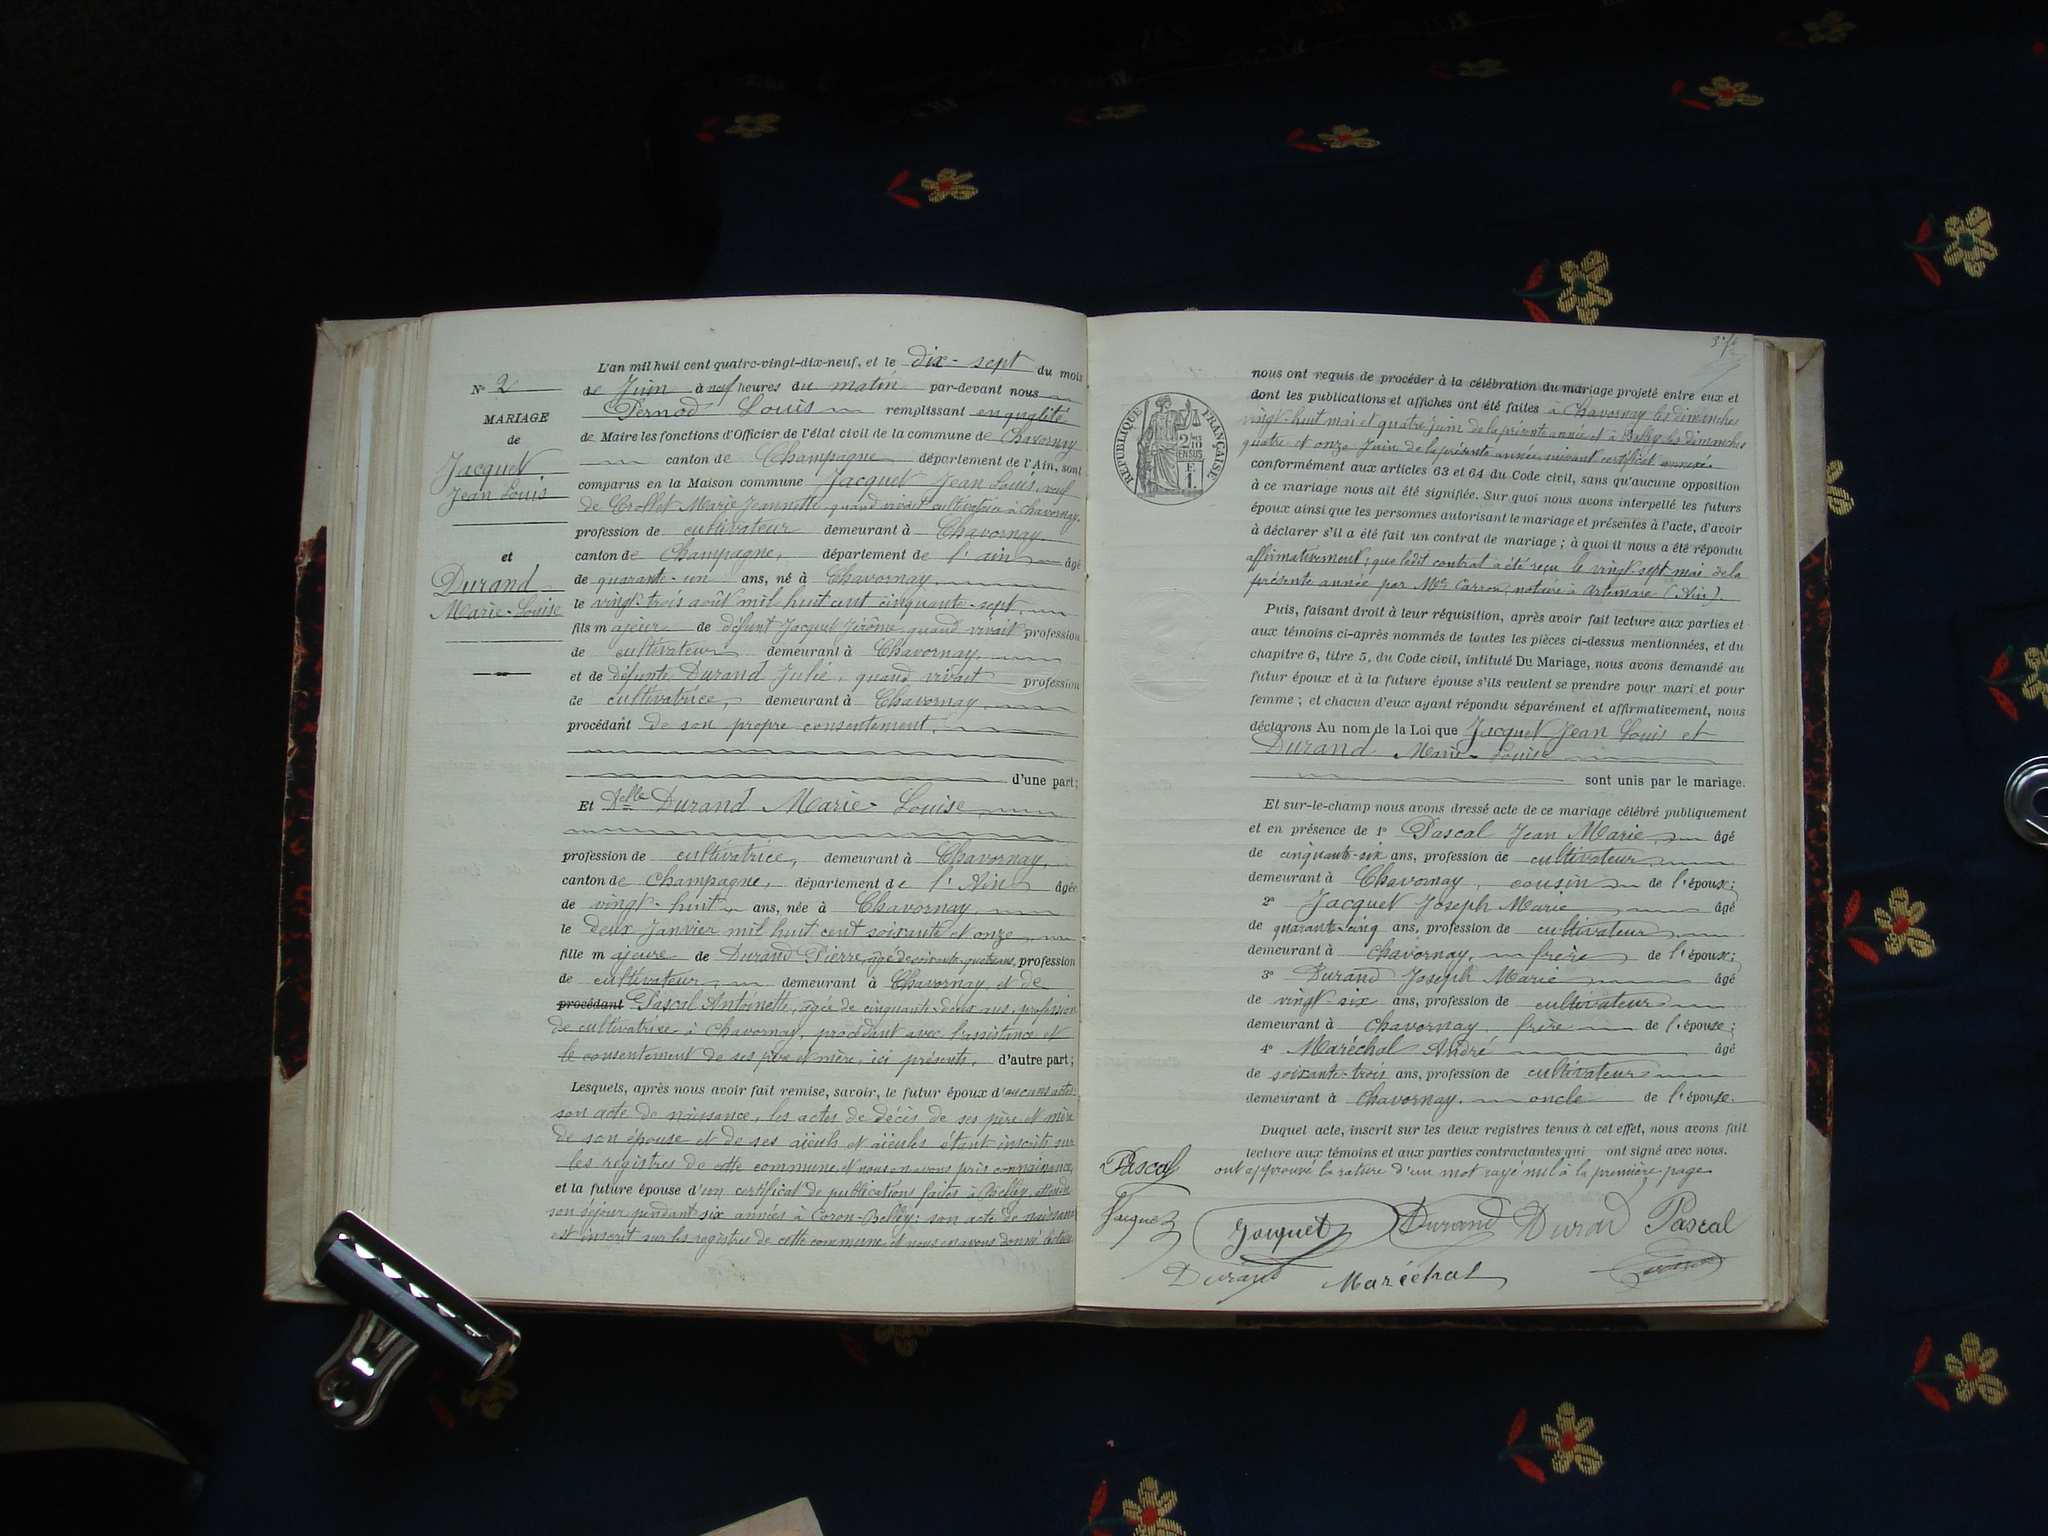 N° 2
MARIAGE
de
Jacquet
Jean Louis
et
Durand
Marie-Louise
L'an mil huit cent quatre-vingt-dix-neuf, et le dix-sept du mois
de Juin à neuf heures du matin par-devant nous
Pernod Louis remplissant en qualité
de Maire les fonctions d'Officier de l'état civil de la commune de Chavornay
canton de Champagne département de l'Ain, sont
comparus en la Maison commune Jacquet Jean Louis, veuf
de Crollet Marie Jeannette, quand vivait cultivatrice à Chavornay.
profession de cultivateur demeurant à Chavornay
canton de Champagne, département de l'ain âgé
de quarante-un ans, né à Chavornay,
le vingt-trois août mil huit cent cinquante-sept,
fils majeur de défunt Jacquet Jérôme quand vivait profession
de cultivateur demeurant à Chavornay,
et de défunte Durand Julie, quand vivait profession
de cultivatrice, demeurant à Chavornay,
procédant de son propre consentement,
d'une part;
Et Delle Durand Marie-Louise
profession de cultivatrice, demeurant à Chavornay,
canton de Champagne, département de l'Ain âgée
de vingt-huit ans, née à Chavornay,
le deux Janvier mil huit cent soixante et onze,
fille majeure de Durand Pierre, âgé de soixante-quatre ans, profession
de cultivateur, demeurant à Chavornay et de
procédant Pascal Antoinette, âgée de cinquante-deux ans, profession
de cultivatrice à Chavornay, procédant avec l'assistance et
le consentement de ses père et mère, ici présents, d'autre part;
Lesquels, après nous avoir fait remise, savoir, le futur époux d'aucuns actes
son acte de naissance, les actes de décès de ses père et mère
de son épouse et de ses aïeuls et aïeules étant inscrits sur
les registres de cette commune et nous en avons pris connaissance,
et la future épouse d'un certificat de publications faites à Belley, attendu
son séjour pendant six années à Coron-Belley; son acte de naissance
est inscrit sur les registres de cette commune et nous en avons donné lecture
RÉPUBLIQUE FRANÇAISE
2/10 EN SUS
F. 1.
nous ont requis de procéder à la célébration du mariage projeté entre eux et
dont les publications et affiches ont été faites à Chavornay les dimanches
vingt-huit mai et quatre juin de la présente année et à Belley les dimanches
quatre et onze Juin de la présente année suivant certificat annexé.
conformément aux articles 63 et 64 du Code civil, sans qu'aucune opposition
à ce mariage nous ait été signifiée. Sur quoi nous avons interpellé les futurs
époux ainsi que les personnes autorisant le mariage et présentes à l'acte, d'avoir
à déclarer s'il a été fait un contrat de mariage; à quoi il nous a été répondu
affirmativement, que ledit contrat a été reçu le vingt-sept mai de la
présente année par Me Carron, notaire à Artemare (Ain).
Puis, faisant droit à leur réquisition, après avoir fait lecture aux parties et
aux témoins ci-après nommés de toutes les pièces ci-dessus mentionnées, et du
chapitre 6, titre 5, du Code civil, intitulé Du Mariage, nous avons demandé au
futur époux et à la future épouse s'ils veulent se prendre pour mari et pour
femme; et chacun d'eux ayant répondu séparément et affirmativement, nous
déclarons Au nom de la Loi que Jacquet Jean Louis et
Durand Marie-Louise
sont unis par le mariage.
Et sur-le-champ nous avons dressé acte de ce mariage célébré publiquement
et en présence de 1° Pascal Jean Marie, âgé
de cinquante-six ans, profession de cultivateur
demeurant à Chavornay, cousin de l'épouse;
2° Jacquet Joseph Marie âgé
de quarante-cinq ans, profession de cultivateur
demeurant à Chavornay, frère de l'époux;
3° Durand Joseph Marie âgé
de vingt six ans, profession de cultivateur
demeurant à Chavornay frère de l'épouse;
4° Maréchal André âgé
de soixante-trois ans, profession de cultivateur
demeurant à Chavornay. oncle de l'épouse.
Duquel acte, inscrit sur les deux registres tenus à cet effet, nous avons fait
lecture aux témoins et aux parties contractantes qui ont signé avec nous.
ont approuvé la rature d'un mot rayé nul à la première page
Pascal
Jacquet Jacquet Durand Durand Pascal
Durand Maréchal